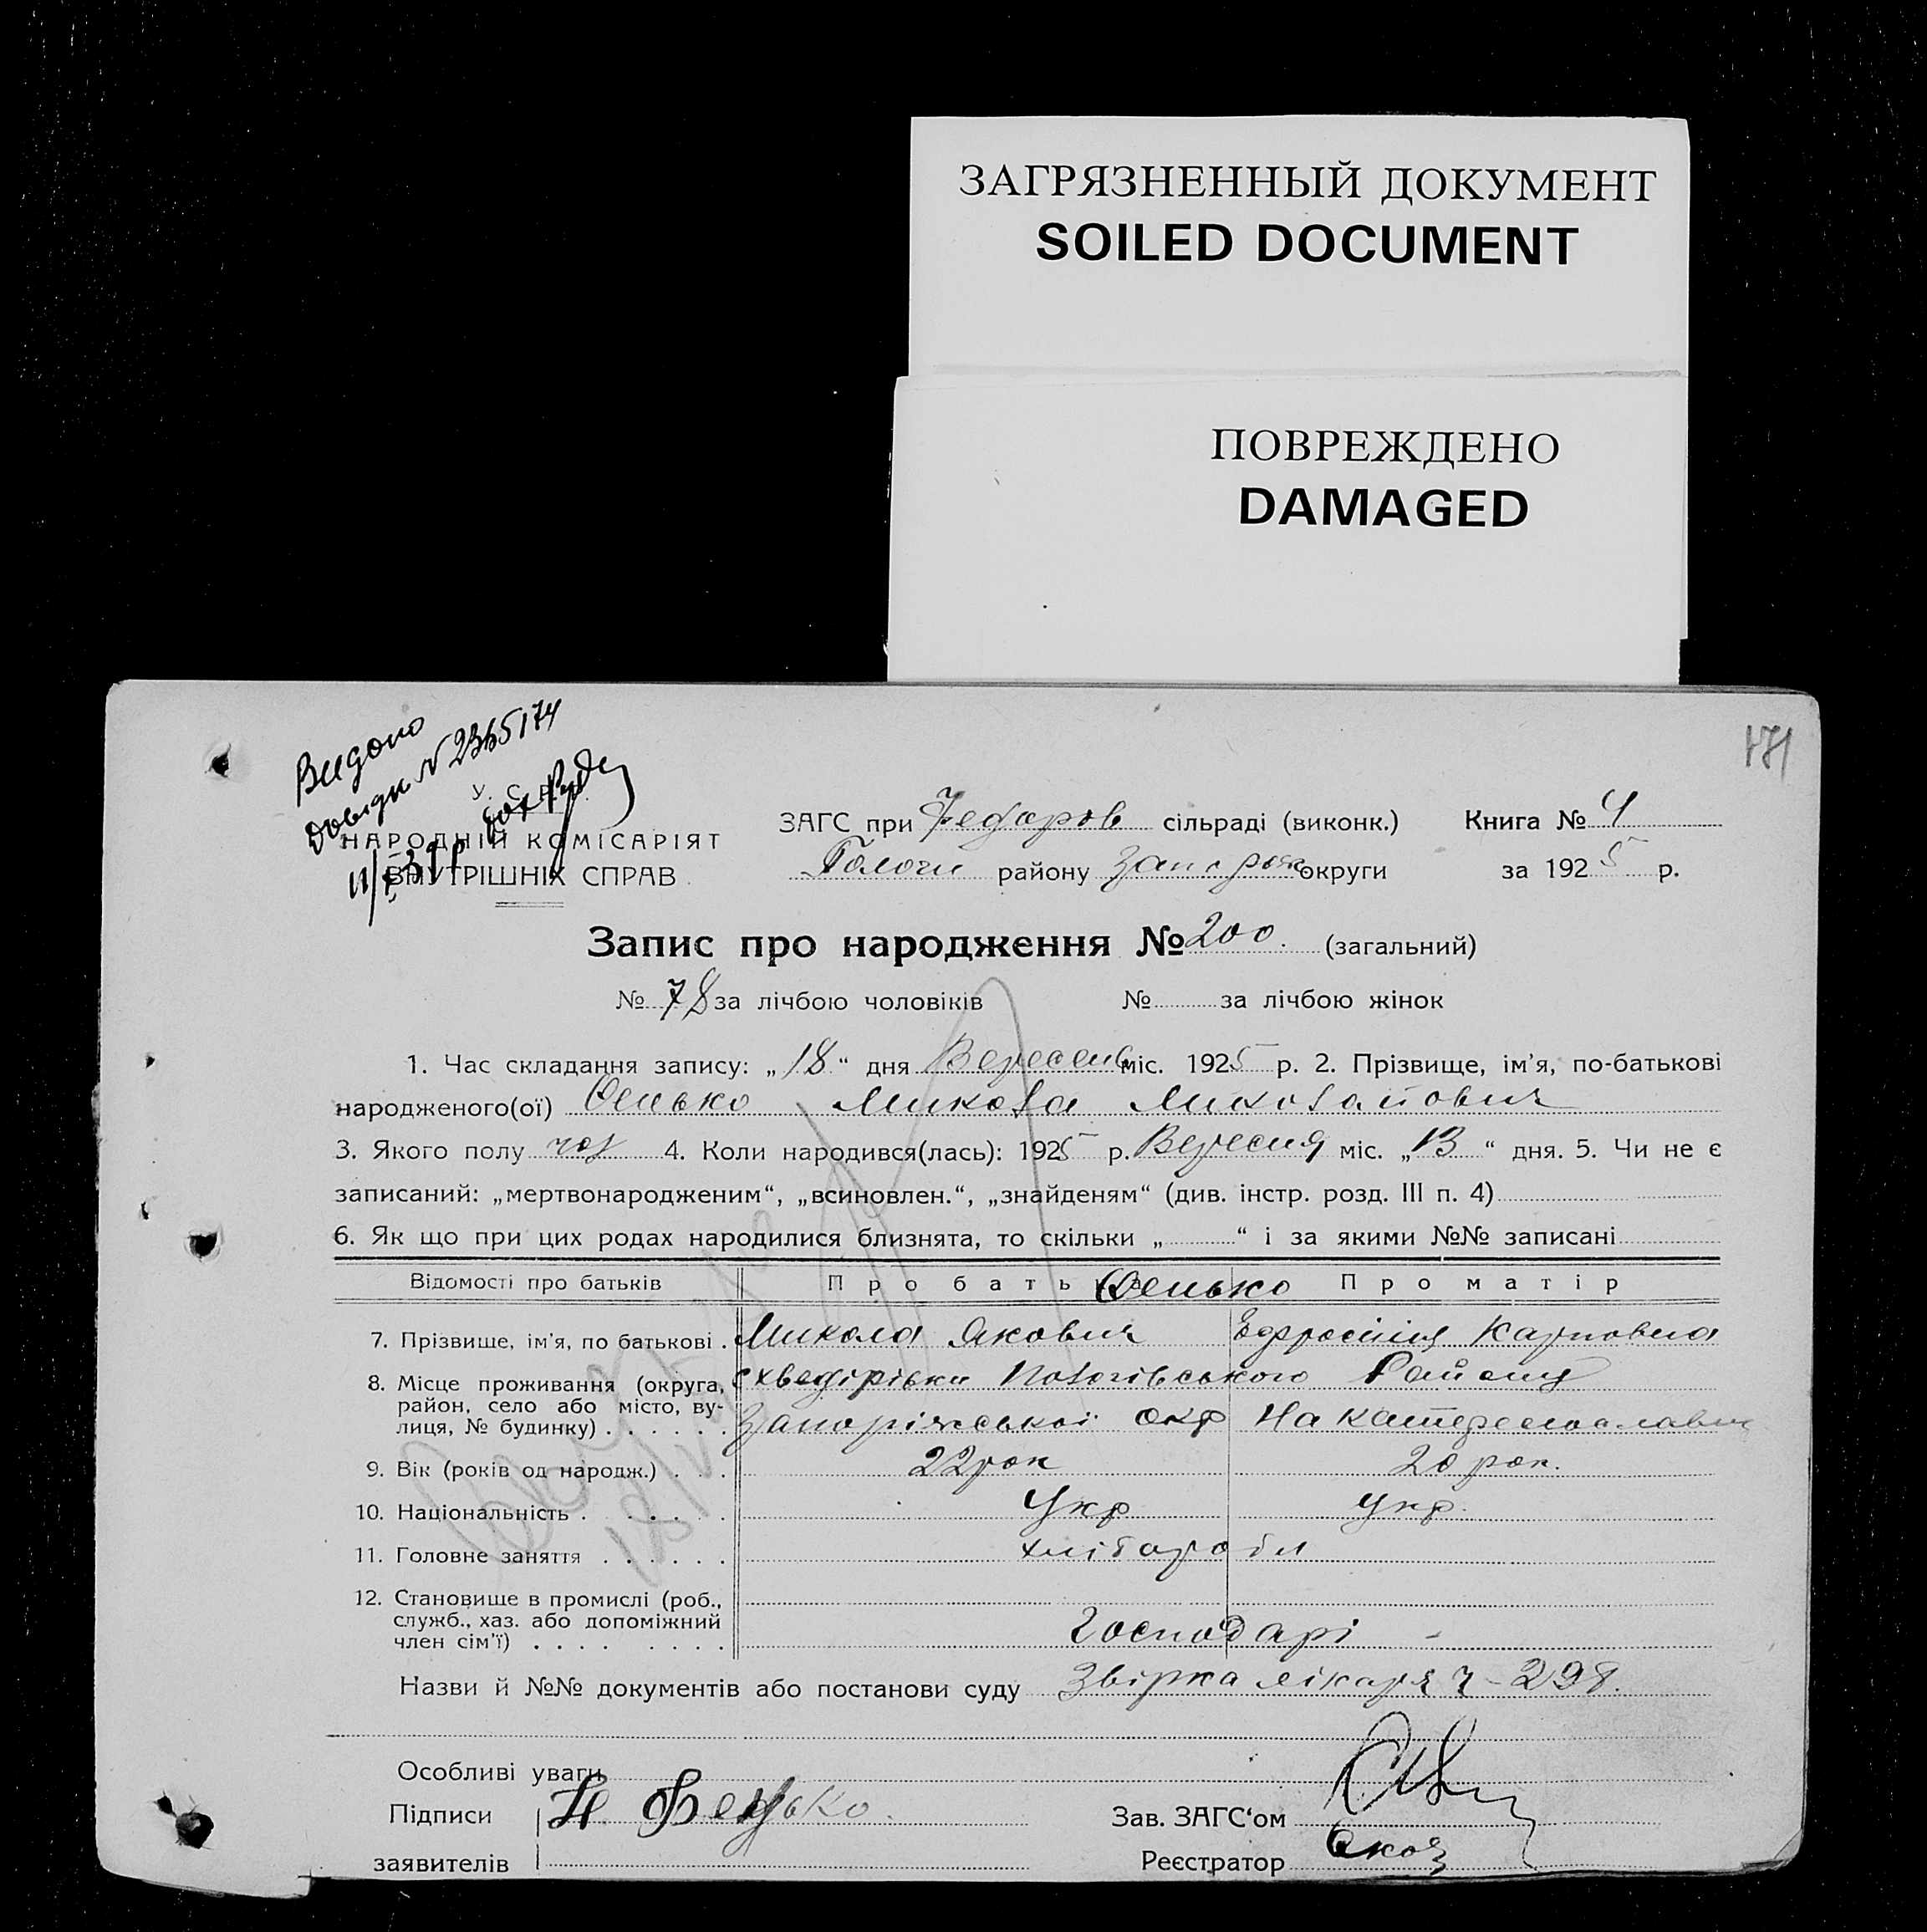 ЗАГРЯЗНЕННЫЙ ДОКУМЕНТ
SOILED DOCUMENT
ПОВРЕЖДЕНО
DAMAGED
171
Видано
довідк N 2365174
У. С.
НАРОДНІЙ КОМІСАРІЯТ
ВНУТРІШНІХ СПРАВ
ЗАГС при Федоров сільраді (виконк.) Книга № 4
Пологи району Запоріж округи за 1925 р.
Запис про народження № 200. (загальний)
№ 78 за лічбою чоловіків № за лічбою жінок
1. Час складання запису: „18“ дня Вересень міс. 1925 р. 2. Прізвище, ім'я, по-батькові
народженого(ої) Фенько Микола Миколайович
3. Якого полу чол 4. Коли народився(лась): 1925 р. Вересня міс. „13“ дня. 5. Чи не є
записаний: „мертвонародженим“, „всиновлен.“, „знайденям“ (див. інстр. розд. III п. 4)
6. Як що при цих родах народилися близнята, то скільки „ “ і за якими №№ записані
Відомості про батьків Про батька Фенько Про матір
7. Прізвище, ім'я, по батькові . Микола Якович Єфросинія Карповна
8. Місце проживання (округа, с хведірівки Пологівського Району
район, село або місто, ву-
лиця, № будинку) . . . . . . Запоріжської окр На
9. Вік (років од народж.) . . . 22 рок 20 рок.
10. Національність . . . . . . Укр Укр.
11. Головне заняття . . . . . . хлібороби
12. Становище в промислі (роб.,
служб., хаз. або допоміжний
член сім'ї) . . . . . . . . Господарі -
Назви й №№ документів або постанови суду Звірка лікаря ч - 298.
Особливі уваги
Підписи Н. Фенько. Зав. ЗАГС'ом
заявителів Реєстратор